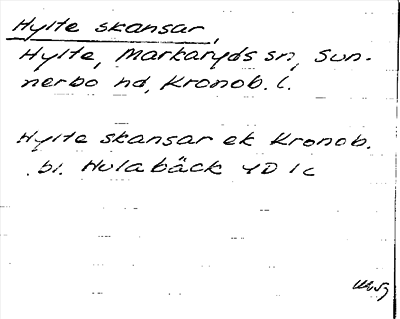 Hylte skansar,
Hylte, Markaryds sn, Sun-
nerbo hd, Kronob. l.
Hylte skansar ek Kronob.
bl. Hulabäck 4D 1c